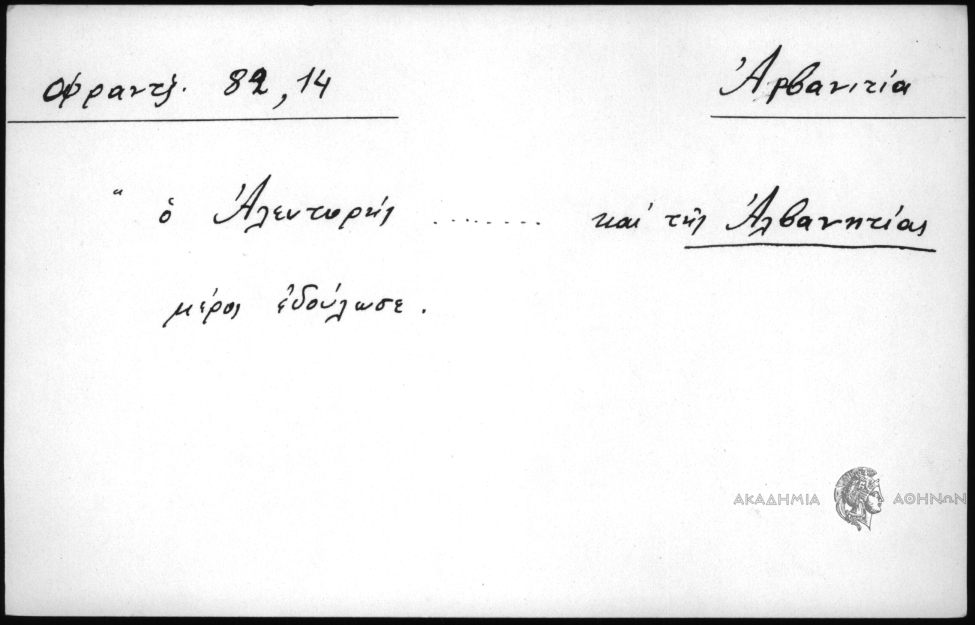 Φραντζ. 82,14 Ἀρβανιτία
“ ὁ Ἀλευτωρής ......... καί τῆς Ἀλβανητίας
μέρος ἐδούλωσε.
ΑΚΑΔΗΜΙΑ ΑΘΗΝΩΝ